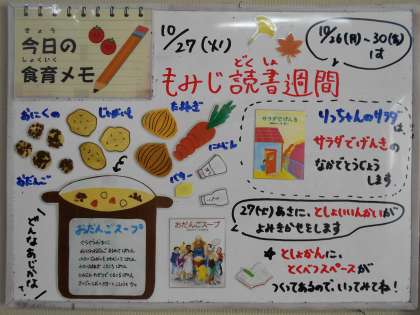 きょう
今日の
しょくいく
食育メモ
10/27(火)
10/26(月)~30(金)は
どくしょ
もみじ読書週間
おにくの
じゃがいも
たまねぎ
にんじん
バター
おだんご
サラダでげんき
りっちゃんのサラダは、
サラダでげんきの
なかでとうじょう
します
どんなあじかな
おだんごスープ
おだんごスープ
27(火)あさに、としょいいんかいが
よみきかせをします
としょかんに、
とくべつスペースが
つくってあるので、いってみてね!